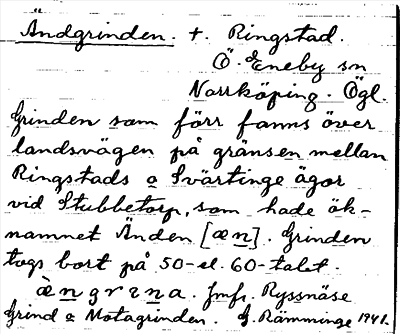 Ändgrinden. t. Ringstad.
Ö. Eneby sn
Norrköping. Ögl.
Grinden som förr fanns över
landsvägen på gränsen mellan
Ringstads o Svärtinge ägor
vid Stubbetorp, som hade ök-
namnet Änden [æn]. Grinden
togs bort på 50-el. 60-talet.
àngrɩna. Jmfr. Ryssnäse
Grind o Motagrinden. G. Rämminge 1941.